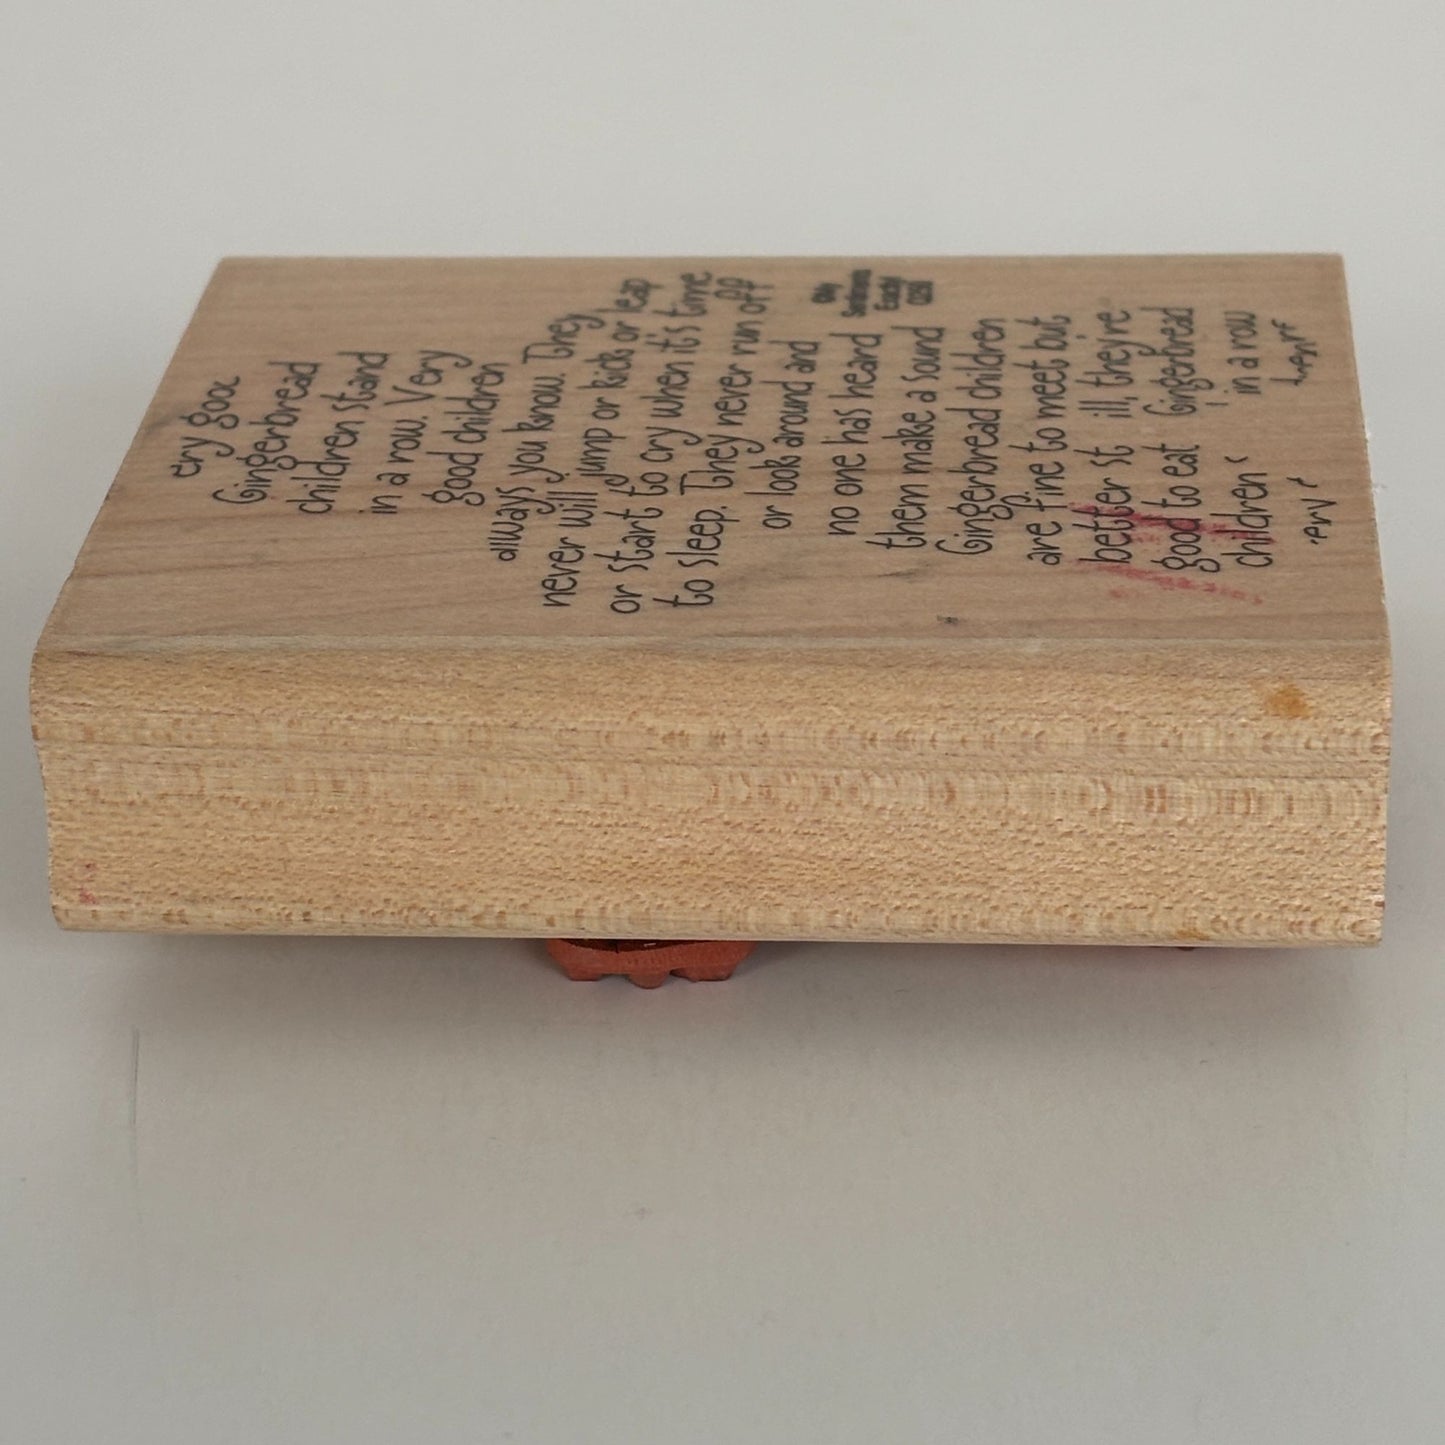 ery goo
Gingerbread
children stand
in a row. Very
good children
allways you know. They
never will jump or kick or leap
or start to cry when it's time
to sleep. They never run off
or look around and
no one has heard
them make a sound
Gingerbread children
are fine to meet but
better st ill, they're
good to eat Gingerbread
children in a row
My
Sentiments
Exactly